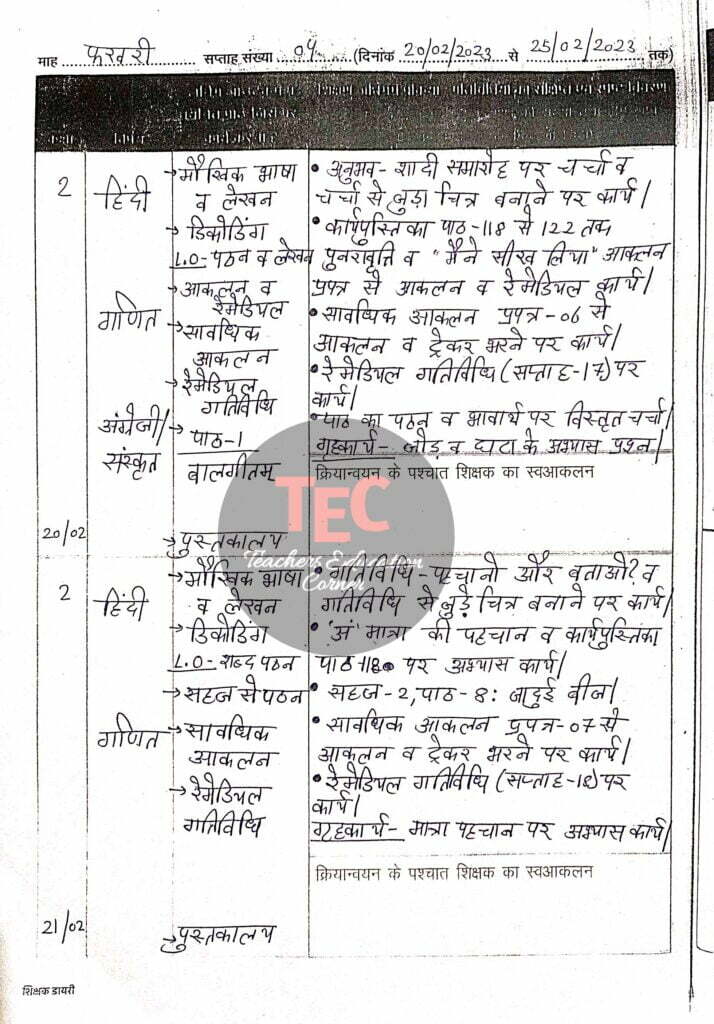 माह फरवरी सप्ताह संख्या 04 (दिनांक 20/02/2023 से 25/02/2023 तक)
2
हिंदी
→ मौखिक भाषा
व लेखन
→ डिकोडिंग
L.O- पठन व लेखन
→ आकलन व
रेमेडियल
गणित
→ सावधिक
आकलन
→ रेमेडियल
गतिविधि
अंग्रेजी/
संस्कृत
→ पाठ-1
बालगीतम्
20/02
→ पुस्तकालय
• अनुभव- शादी समारोह पर चर्चा व
चर्चा से जुड़ा चित्र बनाने पर कार्य|
• कार्यपुस्तिका पाठ-118 से 122 तक
पुनरावृत्ति व "मैंने सीख लिया" आकलन
प्रपत्र से आकलन व रेमेडियल कार्य|
• सावधिक आकलन प्रपत्र-06 से
आकलन व ट्रेकर भरने पर कार्य|
• रेमेडियल गतिविधि (सप्ताह-17) पर
कार्य|
• पाठ का पठन व भावार्थ पर विस्तृत चर्चा|
गृहकार्य- जोड़ व घटा के अभ्यास प्रश्न|
क्रियान्वयन के पश्चात शिक्षक का स्वआकलन
TEC
Teachers Education
Corner
2
हिंदी
→ मौखिक भाषा
व लेखन
→ डिकोडिंग
L.O- शब्द पठन
→ सहज से पठन
गणित
→ सावधिक
आकलन
→ रेमेडियल
गतिविधि
21/02
→ पुस्तकालय
• गतिविधि- पहचानो और बताओ? व
गतिविधि से जुड़े चित्र बनाने पर कार्य|
• 'अं' मात्रा की पहचान व कार्यपुस्तिका
पाठ-118 पर अभ्यास कार्य|
• सहज-2, पाठ-8: जादुई बीज|
• सावधिक आकलन प्रपत्र-07 से
आकलन व ट्रेकर भरने पर कार्य|
• रेमेडियल गतिविधि (सप्ताह-18) पर
कार्य|
गृहकार्य- मात्रा पहचान पर अभ्यास कार्य|
क्रियान्वयन के पश्चात शिक्षक का स्वआकलन
शिक्षक डायरी